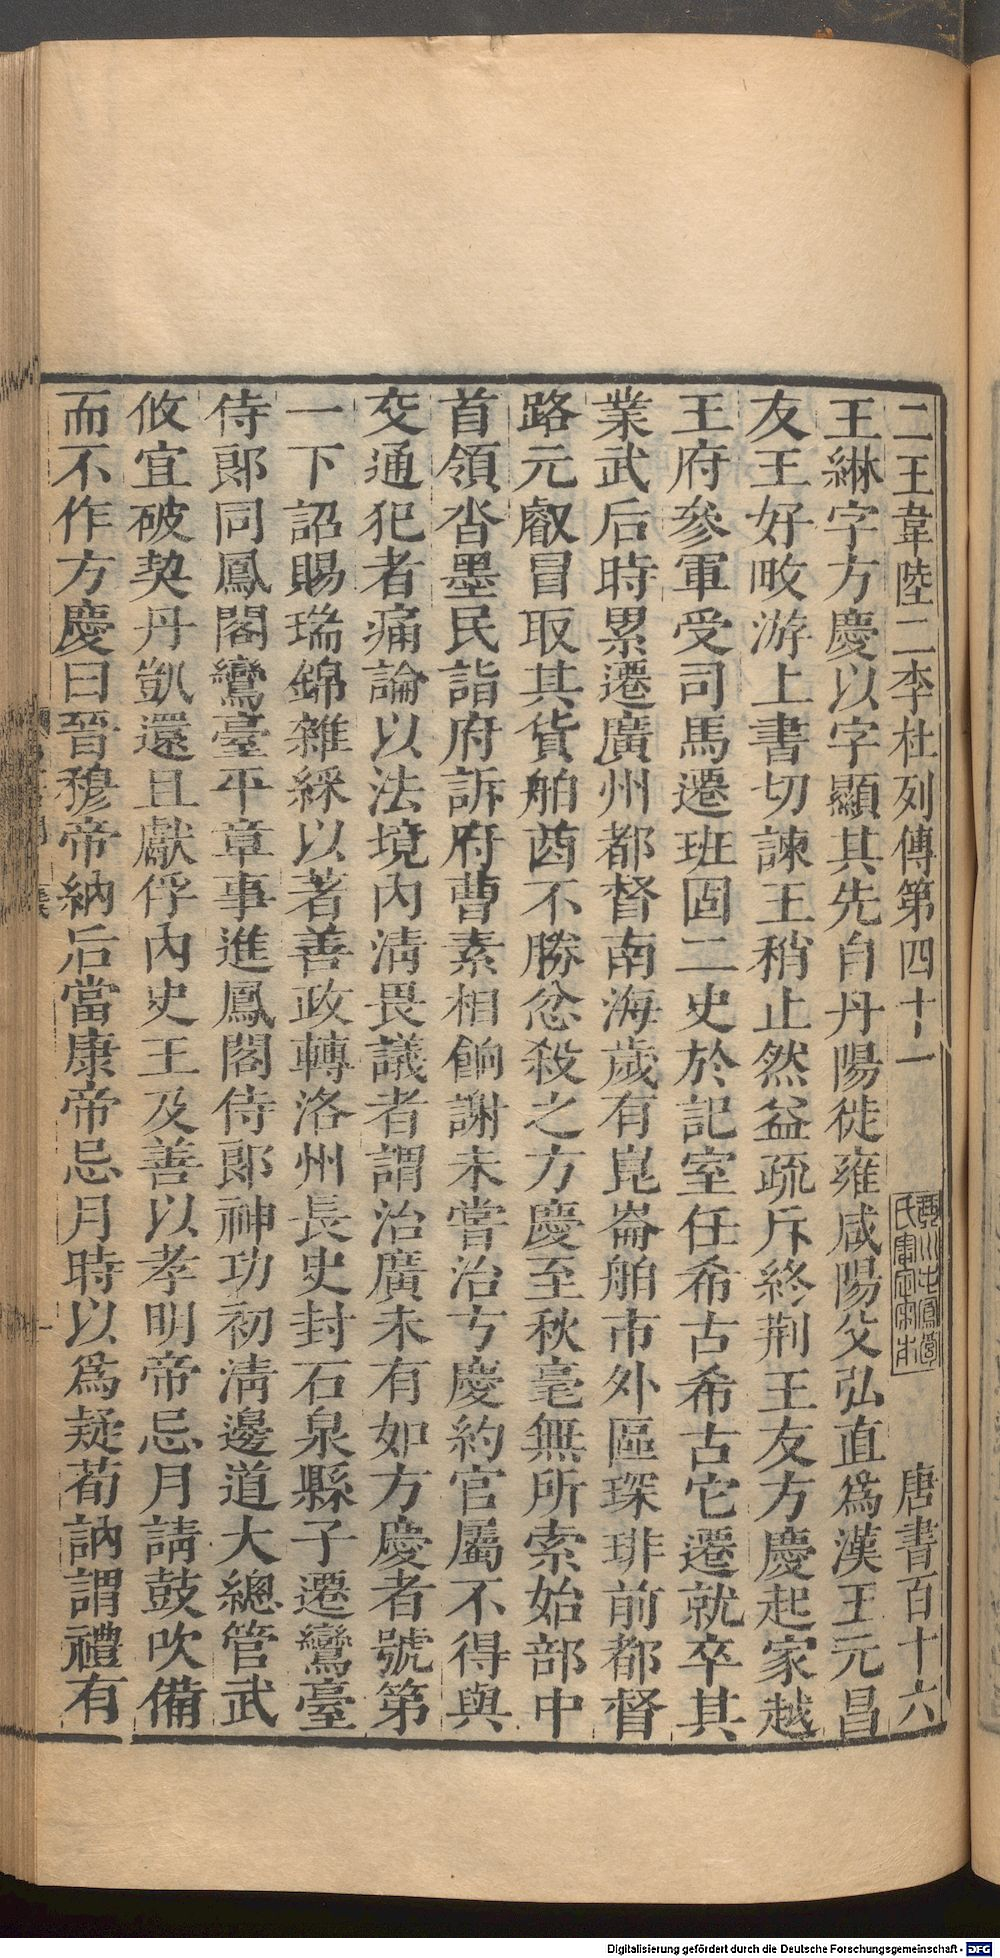 二王韋陸二李杜列傳第四十一　唐書百十六
王綝字方慶以字顯其先自丹陽徙雍咸陽父弘直爲漢王元昌
友王好畋游上書切諫王稍止然益疏斥終荆王友方慶起家越
王府參軍受司馬遷班固二史於記室任希古希古它遷就卒其
業武后時累遷廣州都督南海歲有崑崙舶市外區琛琲前都督
路元叡冒取其貨舶酋不勝忿殺之方慶至秋毫無所索始部中
首領沓墨民詣府訴府曹素相餉謝未嘗治方慶約官屬不得與
交通犯者痛論以法境內清畏議者謂治廣未有如方慶者號第
一下詔賜瑞錦雜綵以著善政轉洛州長史封石泉縣子遷鸞臺
侍郎同鳳閣鸞臺平章事進鳳閣侍郎神功初清邊道大總管武
攸宜破契丹凱還且獻俘內史王及善以孝明帝忌月請鼓吹備
而不作方慶曰晉穆帝納后當康帝忌月時以爲疑荀訥謂禮有
Digitalisierung gefördert durch die Deutsche Forschungsgemeinschaft - DFG